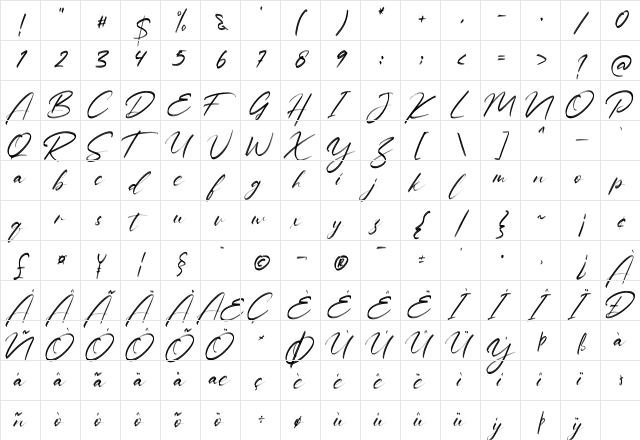 ! " # $ % & ' ( ) * + , - . / 0
1 2 3 4 5 6 7 8 9 : ; < = > ? @
A B C D E F G H I J K L M N O P
Q R S T U V W X Y Z [ \ ] ^ _ `
a b c d e f g h i j k l m n o p
q r s t u v w x y z { | } ~ ¡ ¢
£ ¤ ¥ ¦ § ¨ © ¬ ® ¯ ± ´ · ¸ ¿ À
Á Â Ã Ä Å Æ Ç È É Ê Ë Ì Í Î Ï Ð
Ñ Ò Ó Ô Õ Ö × Ø Ù Ú Û Ü Ý Þ ß à
á â ã ä å æ ç è é ê ë ì í î ï
ñ ò ó ô õ ö ÷ ø ù ú û ü ý þ ÿ